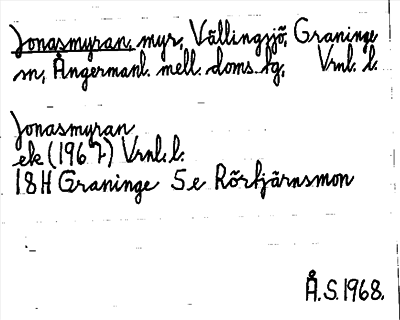 Jonasmyran, myr, Vällingsjö, Graninge
sn, Ångermanl. mell. doms. tg, Vrnl. l.
Jonasmyran
ek (1967) Vrnl. l.
18H Graninge 5e Rörtjärnsmon
Å.S.1968.